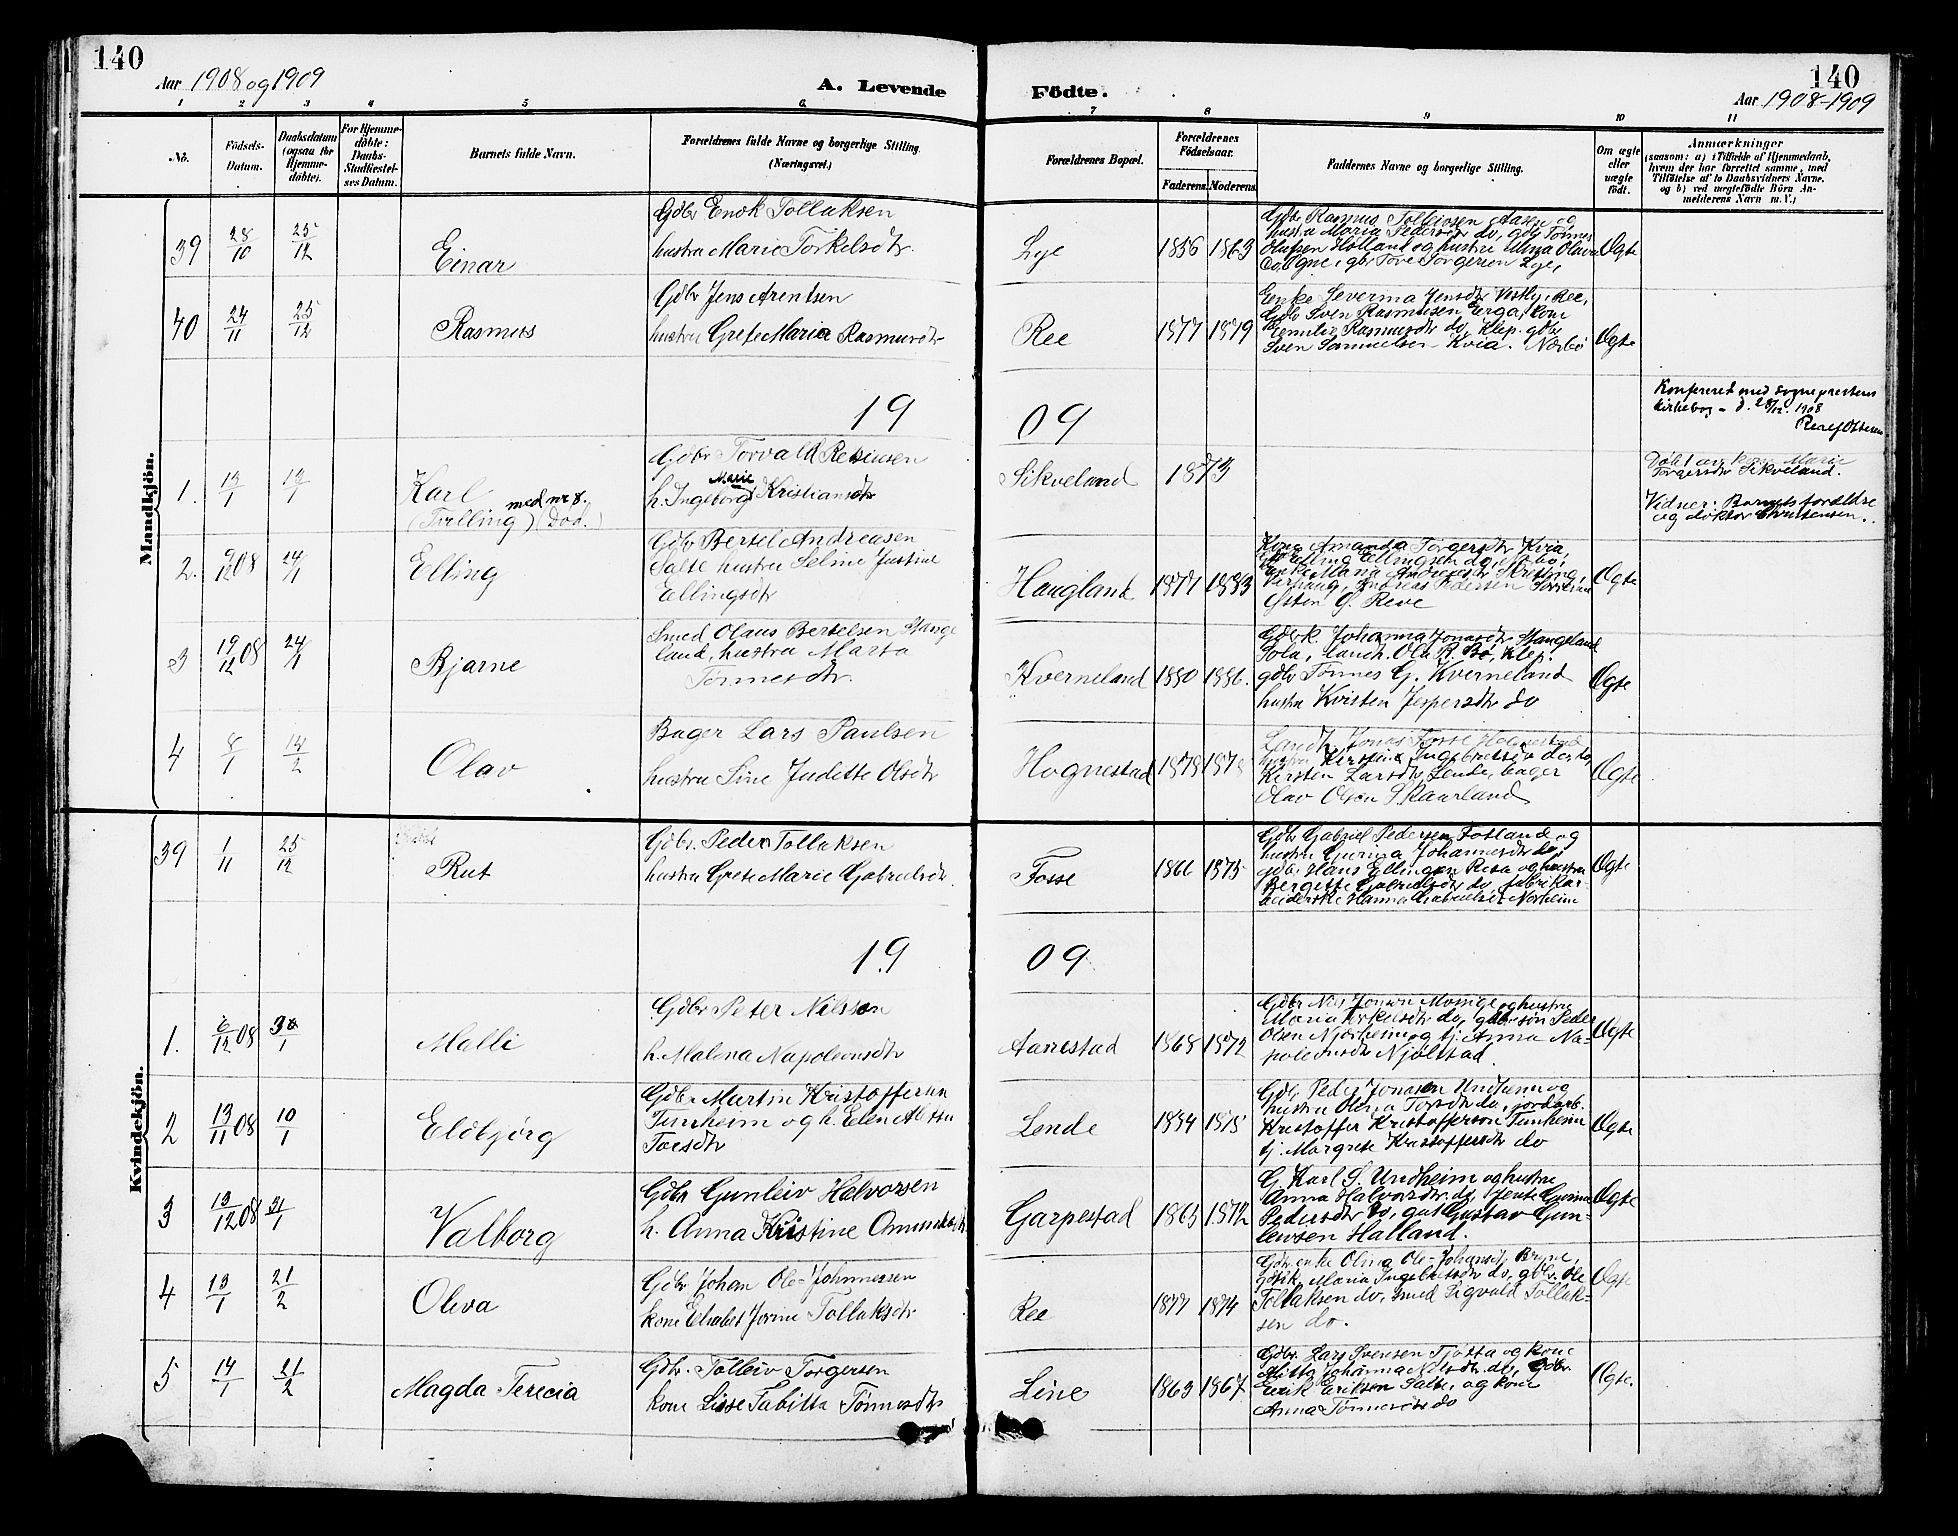 140
Aar 1908 og 1909
A. Levende
Fødte.
140
Aar 1908-1909
1 2 3 4 5 6. 7 8 9 10 11
No.
Fødsels-
Datum.
Daabsdatum
(ogsaa for
Hjemme-
døbte).
For Hjemme-
døbte:
Daabs-
Stadfæstel-
ses Datum.
Barnets fulde Navn.
Forældrenes fulde Navne og borgerlige Stilling.
(Næringsvei.)
Forældrenes Bopæl.
Forældrenes
Fødselsaar.
Faderens.
Moderens.
Faddernes Navne og borgerlige Stilling.
Om ægte
eller
uægte
født.
Anmærkninger
(saasom: a) i Tilfælde af Hjemmedaab,
hvem der har forrettet samme, med
Tilføielse af to Daabsvidners Navne.
og b) ved uægtefødte Börn An-
melderens Navn m. V.)
Mandkjön.
39 28/10 25/12 Einar
Gdbr Enok Tollaksen
hustru Marie Torkelsdtr.
Lye 1856 1863
Gdbr Rasmus Tolleivsen Aasen og
hustru Maria Pedersdtr do, gdb Tønnes
Olufsen Holland og hustru Alina Olava
do, Ogne, gbr Tore Torgersen Lye,
Ogte
40 24/11 25/12 Rasmus
Gdbr Jens Arentsen
hustru Grete Maria Rasmusdtr
Ree 1877 1879
Enke Severina Jensdtr Vestly, Ree,
Gdbr Sven Rasmussen Erga, kone
Rasmusdtr do, Klep. gdbr
Sven Samuelsen Kvia. Nærbø
Ogte
19 09
Konfereret med sogneprestens
kirkebog - d. 28/12. 1908
1. 13/1 13/1 Karl
(Tvilling) med nr 8. (Død.)
Gdbr Torvald Rasmusen
h. Ingeborg Marie Kristiansdtr
Sikveland 1873
Døbt av kone Marie
Torgersdtr Sikveland.
Vidner: Barnets forældre
og doktor Christensen.
2. 9/12 08 24/1 Elling
Gdbr Bertel Andreasen
Salte hustru Seline Justine
Ellingsdtr
Haugland 1877 1883
Kone Amanda Torgersdtr Kvia,
Elling Ellingsen do, Nærbø,
Maria Andreasdtr
Varhaug, Andreas
Østen G. Reve
Ogte
3 19/12 08 24/1 Bjarne
Smed Olaus Bertelsen Stange
land, hustru Marta
Tønnesdtr.
Kverneland 1880 1886.
Gdbrk. Johanna Jonasdtr Stangeland
Sola, landh. Ola R. Bø, Klep.
gdbr Tønnes G. Kverneland
hustru Kristen Jespersdtr do
Ogte
4 8/1 14/2 Olav
Bager Lars Paulsen
hustru Sine Juditte Olsdtr
Hognestad 1878 1878
Landh. Jonas Fosse Hognestad
hustru Kirstine Ingebretsen
Kirsten Larsdtr Lende, bager
Olav Olsen Skaarland
Ogte
Kvindekjön.
39 1/11 25/12 Rut
Gdbr. Peder Tollaksen
hustru Grete Marie Gabrielsdtr.
Fosse 1866 1875
Gdbr Gabriel Pedersen Fosland og
hustru Gurina Johannesdtr do,
gdbr. Hans Ellingsen Risa og hustru
Bergitte Gabrielsdtr do, fabrikar-
beiderske Hanna Gabrielsdtr Norheim
Ogte
19 09
1. 6/12 08 30/1 Malli
Gdbr Peter Nilsson
h. Malena Napoleonsdtr
Aanestad 1868 1872
Gdbr Nils Jonsen Mossige og hustru
Maria Torkelsdtr do, gdbrsøn Peder
Olsen Njærheim og tj. Anna Na-
poleonsdtr Njølstad
Ogte
2 13/11 08 10/1 Eldbjørg
Gdbr Martin Kristoffersen
Tunheim og h. Elen
Toresdtr
Lende 1884 1878
Gdbr Peder Jonassen Undheim og
hustru Olina Toresdtr do, jordarb.
Kristoffer Kristofferson Tunheim
tj. Margrete Kristoffersdtr do
Ogte
3 13/12 08 31/1 Valborg
Gdbr Gunleiv Halvorsen
h. Anna Kristine Omundsdtr
Garpestad 1863 1872
G. Karl S. Undheim og hustru
Anna Halvorsdtr. do, Jente Gurina
Pedersdtr do, gut Gustav Gun-
leivsen Halland.
Ogte
4 13/1 21/2 Oleva
Gdbr Johan Ole-Johannessen
kone Elisabet Jorine Tollaksdtr
Ree 1877 1874
Gdbr.enke Olina Ole-Johansdtr Bryne,
Maria Ingebretsdtr do, gdbr. Ole
Tollaksen do, smed Sigvald Tollak-
sen do.
Ogte
5 14/1 21/2 Magda Terecia
Gdbr. Tolleiv Torgersen
kone Lisse Tabitta Tønnesdtr
Line 1863 1867
Gdbr. Lars Svensen Tjøtta og kone
Mitta Johanna Nilsdtr do, Gdbr.
Eirik Eriksen Salte, og kone
Anna Tønnesdtr do
Ogte.